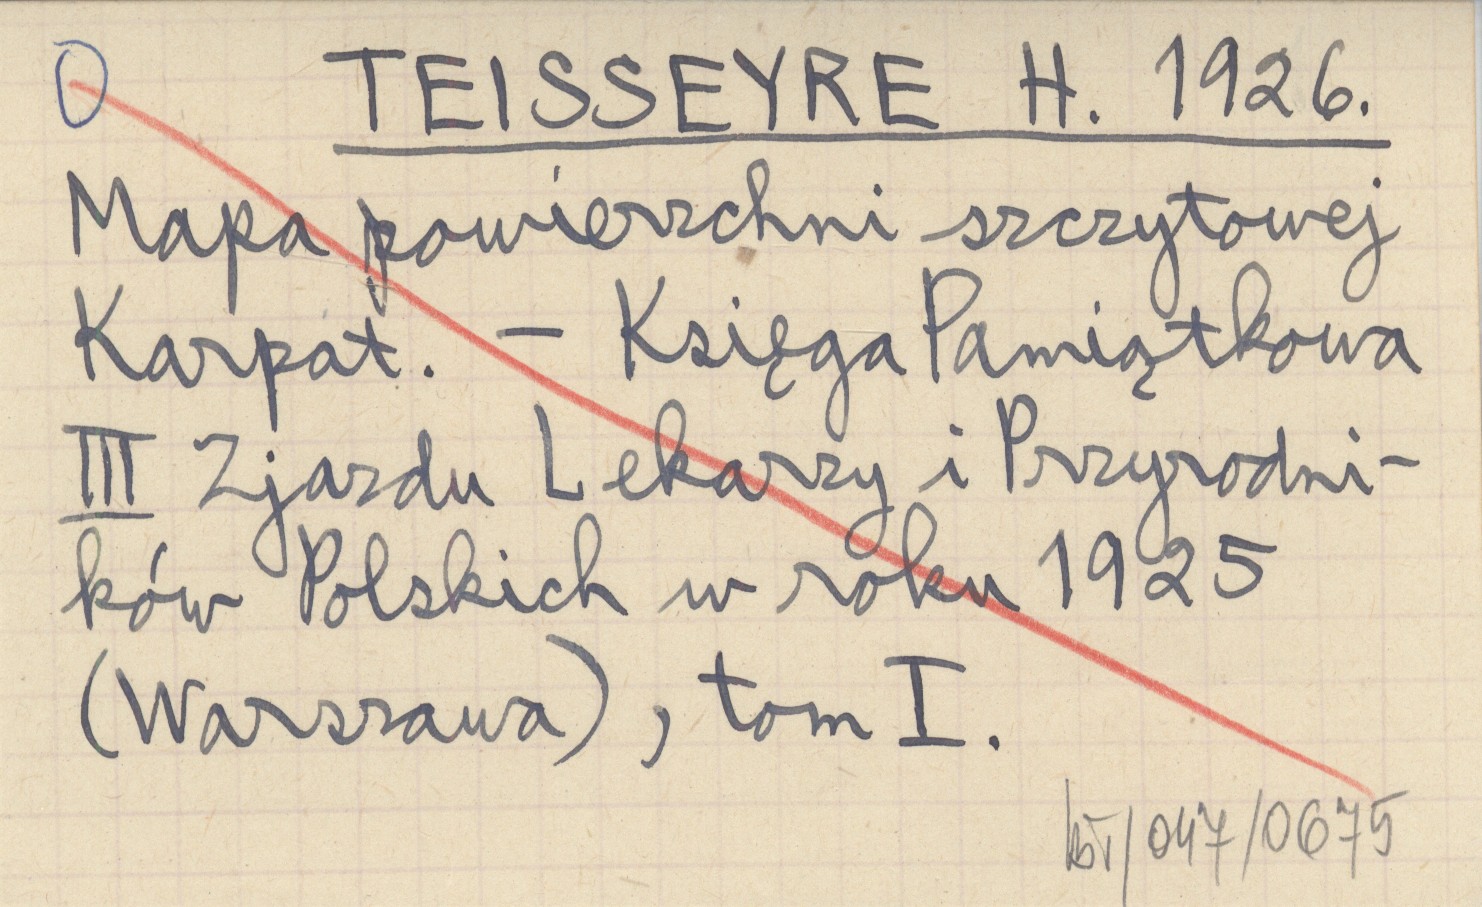 0 TEISSEYRE H. 1926.
Mapa powierzchni szczytowej
Karpat. – Księga Pamiątkowa
III Zjazdu Lekarzy i Przyrodni-
ków Polskich w roku 1925
(Warszawa), tom I.
/047/0675